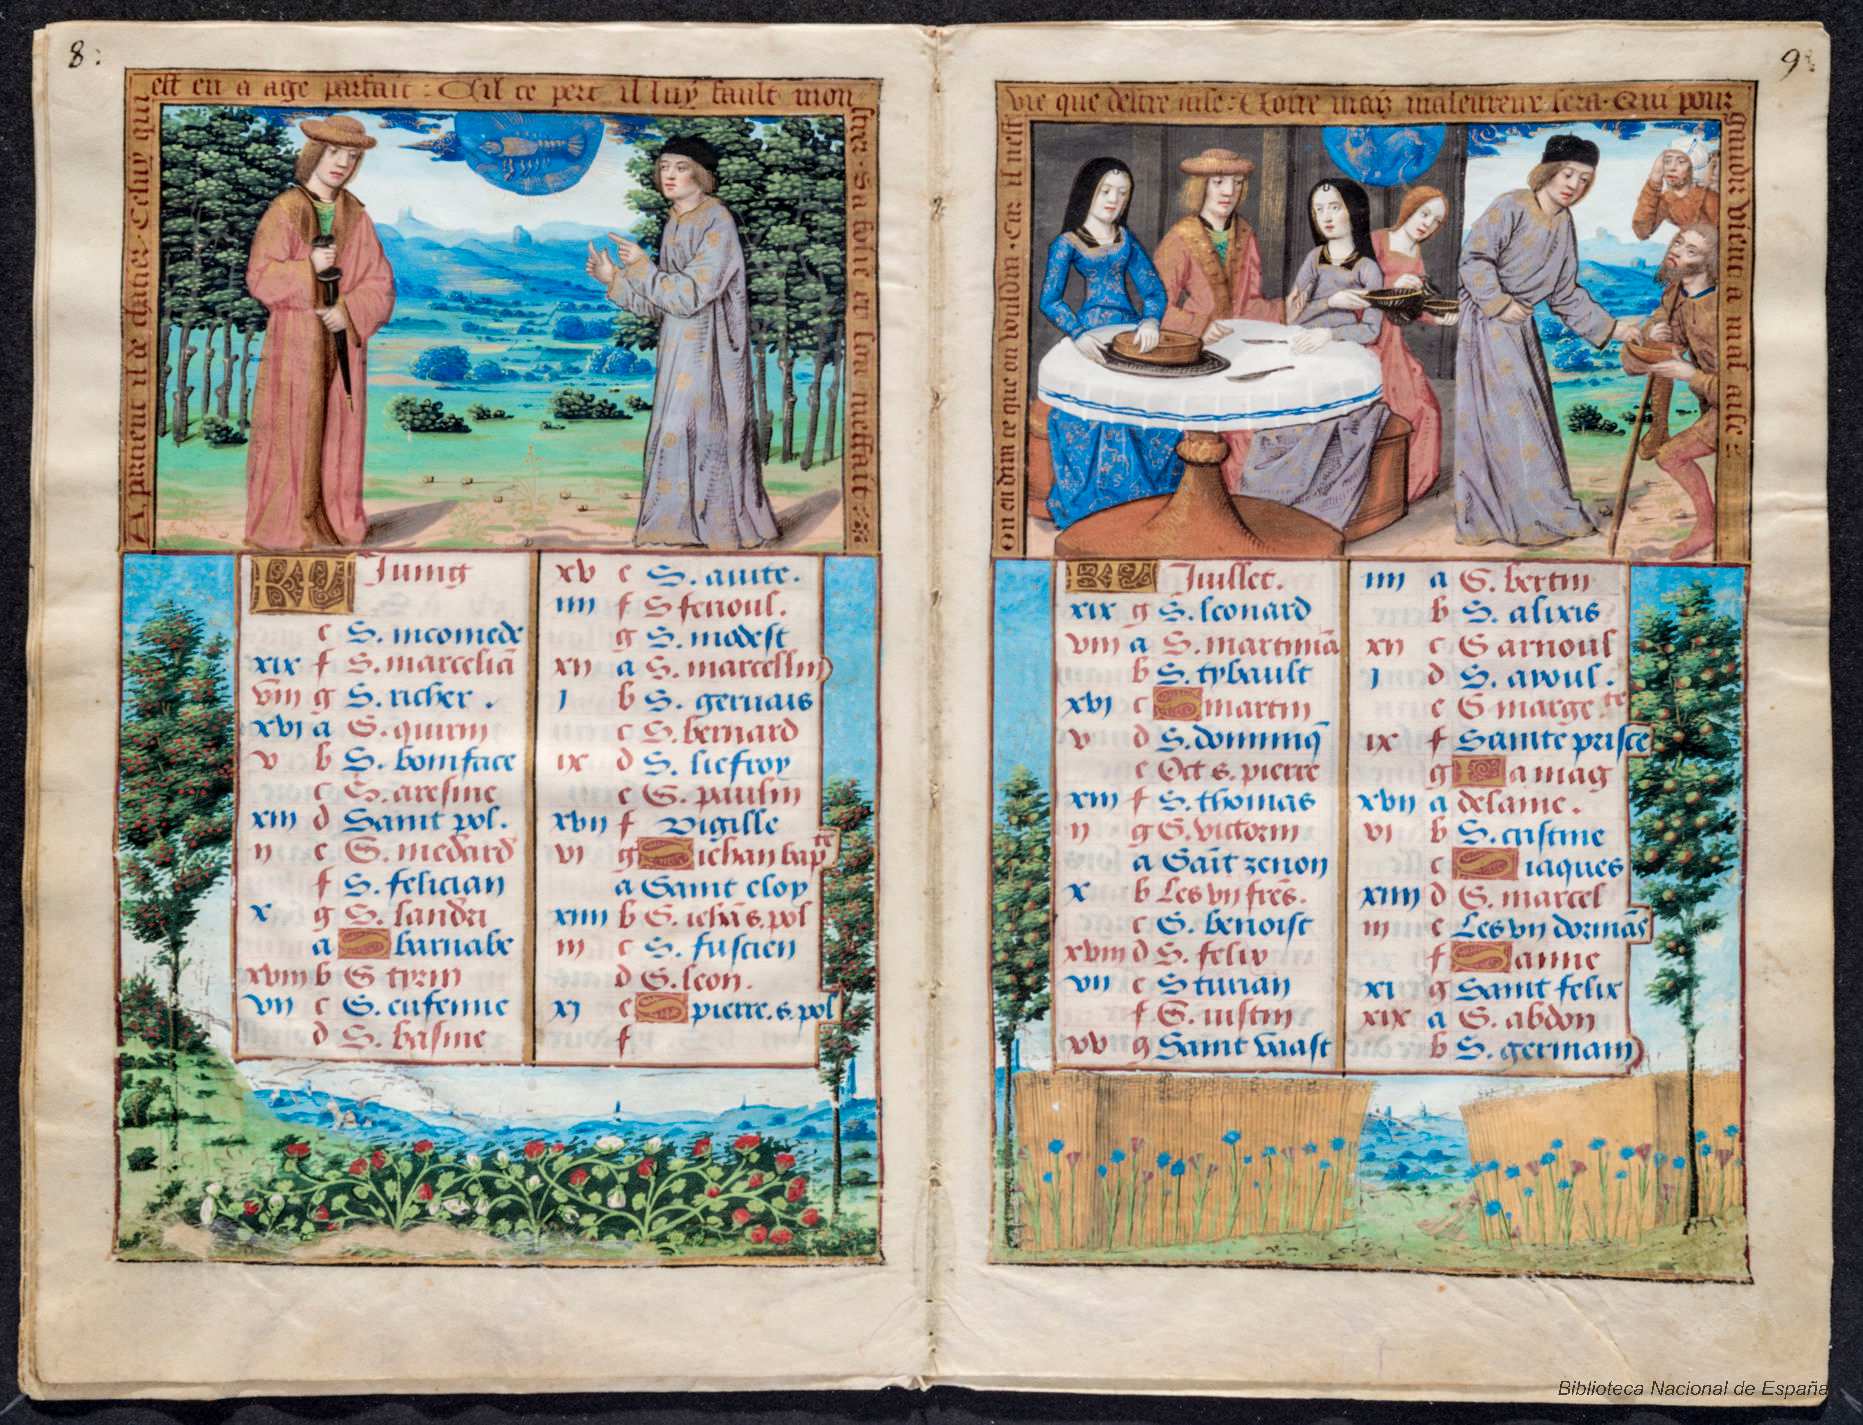 8:
A prient il de chatier. Celuy qui
est en a age parfait: Cil te pert il luy fault mon
strer. Sa folie et son meffait
KL Juing
e S. nicomede
xix f S. marceliã
viii g S. richer.
xvi a S. quirin
v b S. boniface
c S. aresme
xiii d Saint pol.
ii e S. medard
f S. felician
x g S. landri
a S barnabe
xviii b S tyrin
vii c S. eufemie
d S. basine
xv e S. auite.
iiii f S fenoul.
g S. modest
xii a S. marcellin
i b S. gervais
c S. bernard
ix d S. liefroy
e S. paulin
xvii f Vigille
vi g S iehan bapte
a Saint eloy
xiiii b S. iehã s. pol
iii c S. fuscien
d S. leon.
xi e S pierre. s. pol
f
9
On en dain ce que on vouldra. Car. il nest
vie que destre aise: Notte maiz maleureux sera. Qui pour
guidr bien a mal aise:
KL Juillet.
xix g S. leonard
viii a S. martiniã
b S. tybault
xvi c S martin
v d S. dominiq
e Oct s. pierre
xiii f S. thomas
ii g S. victorin
a Saĩt zenon
x b Les vii fres.
c S. benoist
xviii d S. felix
vii e S turian
f S. iustin
xv g Saint vaast
iiii a S. bertin
b S. alixis
xii c S arnoul
i d S. avoul.
e S margete
ix f Sainte prisce
g La mag
xvii a delaine.
vi b S. cristine
c S iaques
xiiii d S. marcel
iii e Les vii dormãs
f S anne
xi g Saint felix
xix a S. abdon
b S. germain
Biblioteca Nacional de España